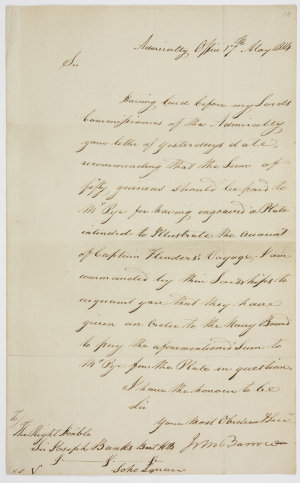 Admiralty Office 17th May 1814
Sir
Having laid before my Lords
Commissioners of the Admiralty
your letter of yesterday's date,
recommending that the Sum of
fifty guineas should be paid to
Mr Pye for having engraved a Plate
intended to Illustrate the account
of Captain Flinders's Voyage, I am
commanded by their Lordships to
acquaint you that they have
given an order to the Navy Board
to pay the aforementioned Sum to
Mr Pye for the Plate in question.
I have the honour to be
Sir
Your Most Obedient
Jn Barrow
To
The Right Honble
Sir Joseph Banks Bart
Soho Square